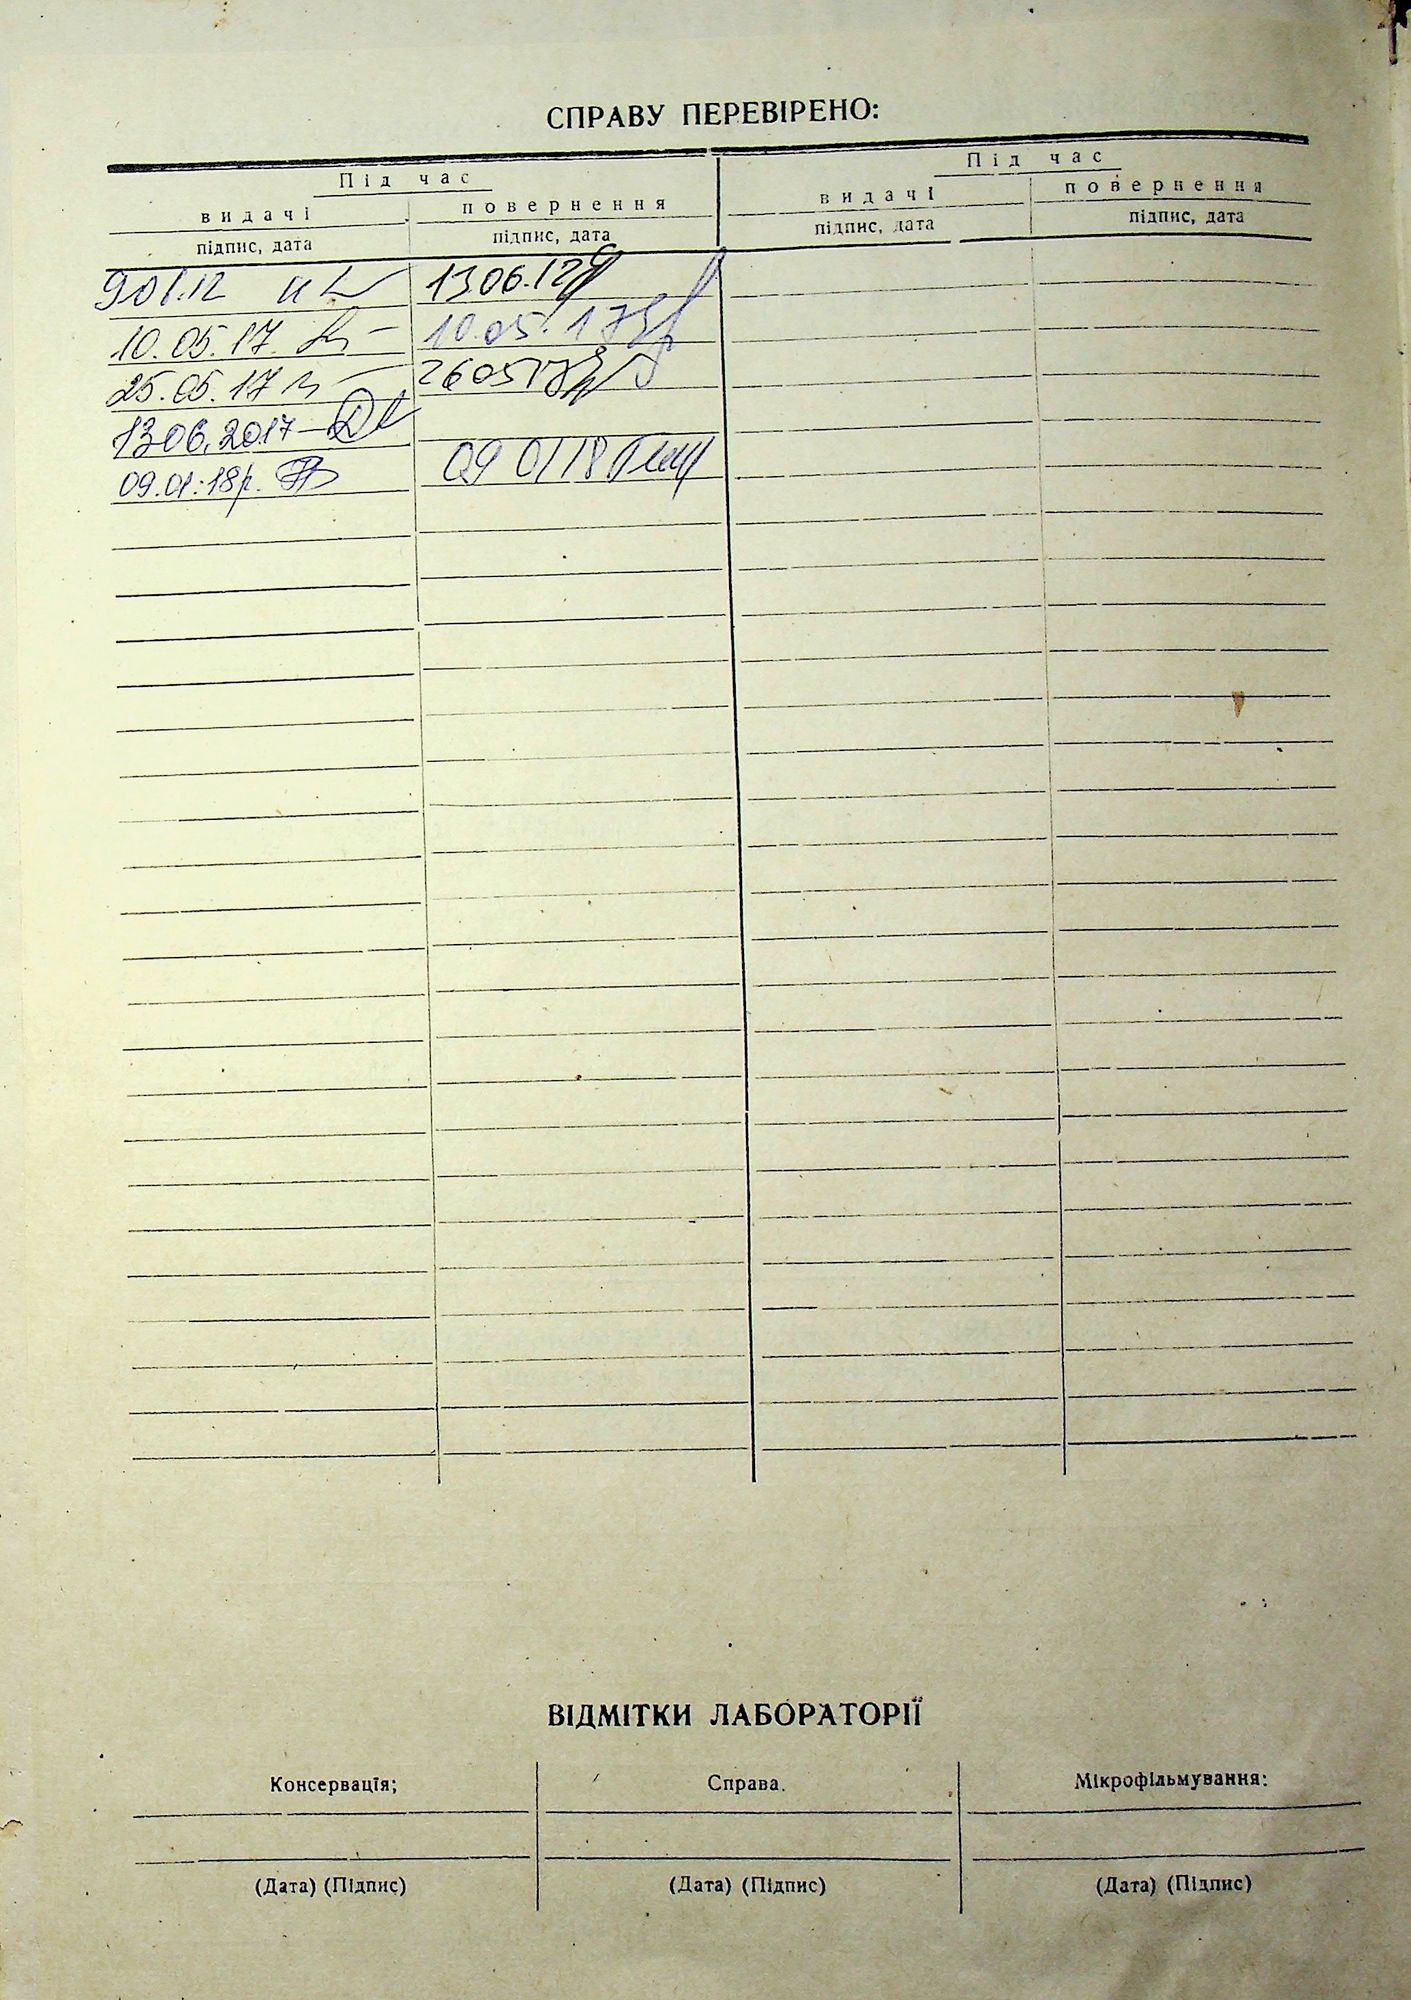 СПРАВУ ПЕРЕВІРЕНО:
Під час Під час
видачі повернення видачі повернення
підпис, дата підпис, дата підпис, дата підпис, дата
901.12 1306.12
10.05.17 10.05.17
25.05.17 260517
1306.2017
09.01.18р. 090118
ВІДМІТКИ ЛАБОРАТОРІЇ
Консервація; Справа. Мікрофільмування:
(Дата) (Підпис) (Дата) (Підпис) (Дата) (Підпис)